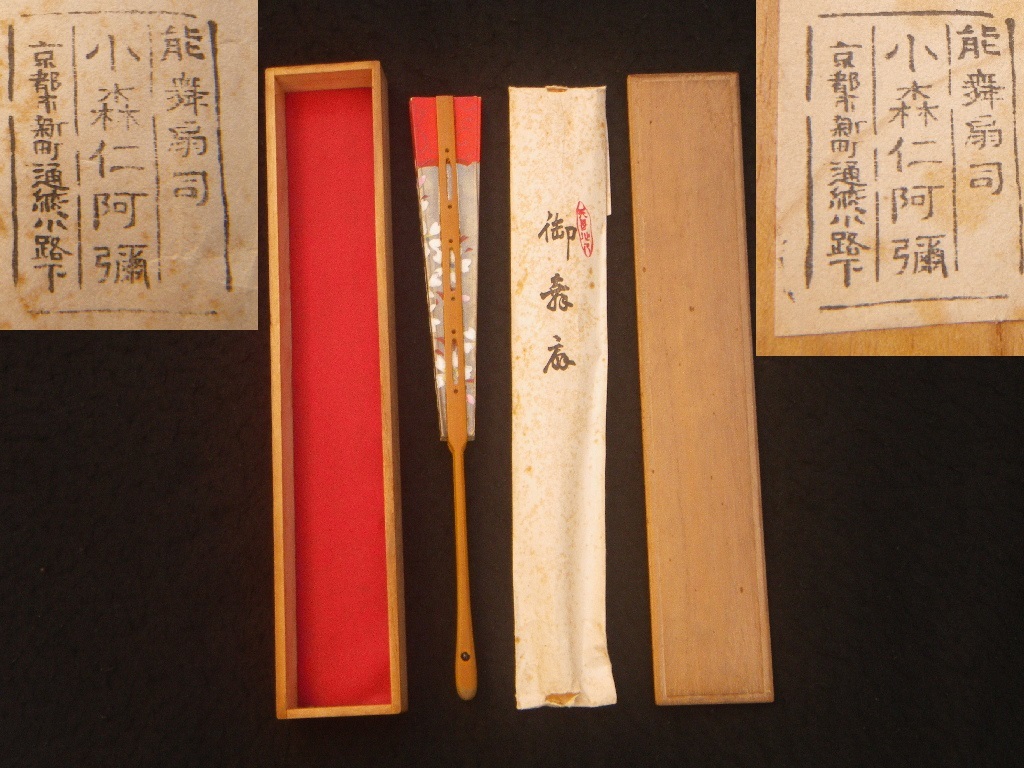 能舞扇司
小森仁阿彌
京都市新町通綾小路下
御舞扇
能舞扇司
小森仁阿彌
京都市新町通綾小路下